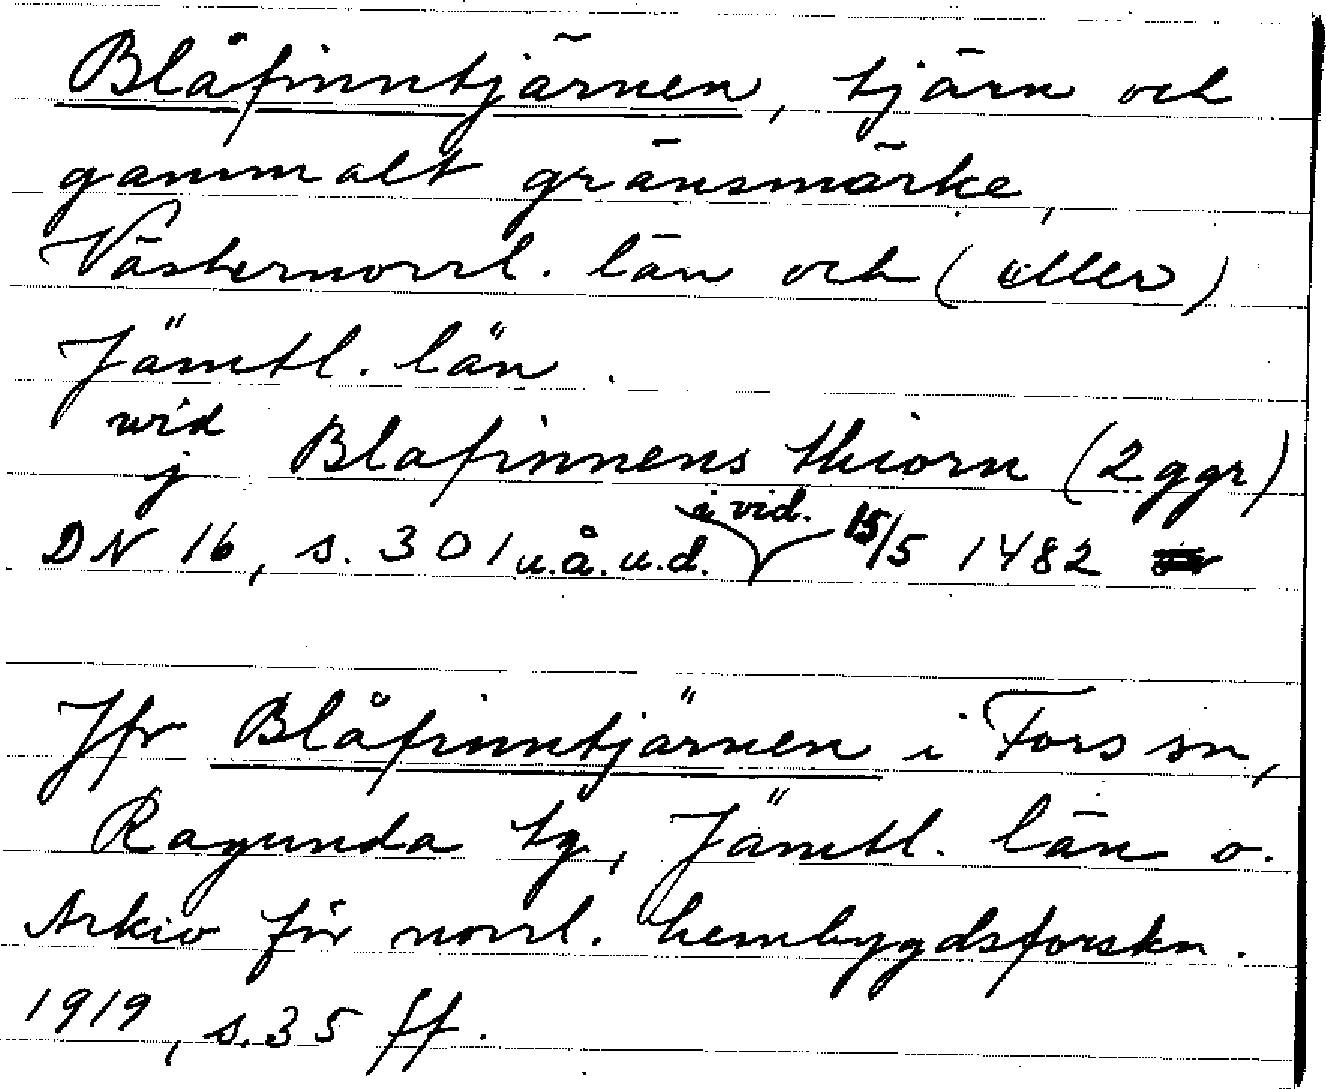 Blåfinntjärnen, tjärn och
gammalt gränsmärke,
Västernorrl. län och (eller)
Jämtl. län.
wid
j Blafinnens thiorn (2 ggr)
DN 16, s. 301 u.å.u.d. i vid. 15/5 1482
Jfr Blåfinntjärnen i Fors sn,
Ragunda tg, Jämtl. län o.
Arkiv för norrl. hembygdsforskn.
1919, s. 35 ff.